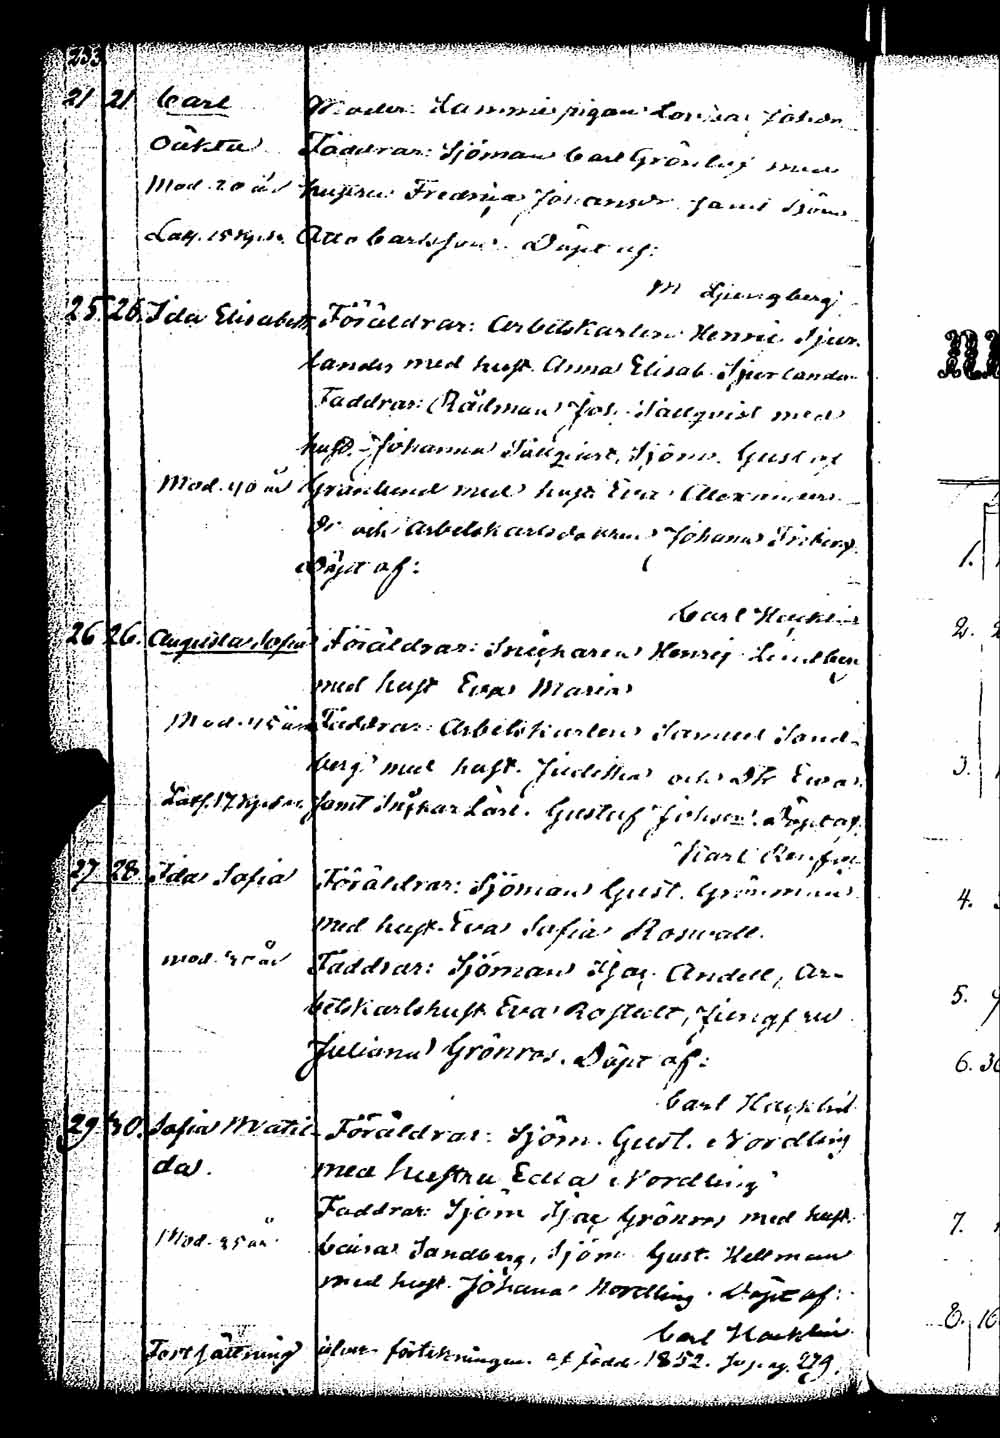 233.
21 21 Carl Moder: pigan Lovisa Johan
Oäkta Faddrar: Sjöman Carl Grönlug med
Mod. 20 år hustru Fredrika Johansdr samt Sjöm
Otto Carlsson. Döpt af:
M Ljungberg
25. 26. Ida Elisabeth Föräldrar: Arbetskarlen Henric Sjur
lander med hust. Anna Elisab. Sjurlander
Faddrar: Rådman Joh. Tallqvist med
hust. Johanna Tallqvist, Sjöm. Gustaf
Mod. 40 år Grönlund med hust. Eva Alexanders
dr och Arbetskarlsdottren Johanna Friberg.
Döpt af:
Carl Hacklin
26 26. Augusta Sofia Föräldrar: Snickaren Henrij Lindberg
med hust Eva Maria
Mod. 45 år Faddrar: Arbetskarlen Samuel Sand-
berg med hust. Juditha och Dtr Eva
samt Lärl. Gustaf Johan. Döpt af
Karl
27 28 Ida Sofia Föräldrar: Sjöman Gust. Grönman
med hust. Eva Sofia Rosvall.
mod. 30 år Faddrar: Sjöman Isac Andell, Ar-
betskarlshust Eva Rostedt, Jungfru
Juliana Grönros. Döpt af:
Carl Hacklin
29 30. Sofia Matil- Föräldrar: Sjöm. Gust. Nordling
da. med hustru Edla Nordling
Faddrar: Sjöm Isac Grönros med hust.
Mod. 35 år Caisa Sandberg, Sjöm Gust. Hellman
med hust. Johana Nordling. Döpt af:
Carl Hacklin
Fortsättning öfver förtekningen af födde 1852. Se pag. 279.
1.
2.
3.
4.
5.
6. 30
7.
8. 16